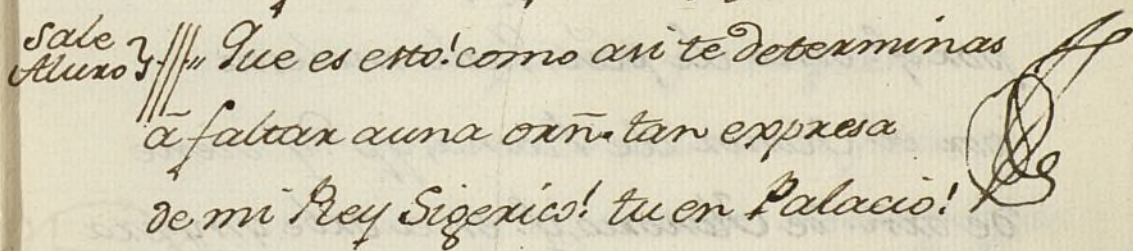 Sale
Aluro}
Que es esto! como asi te determinas
à faltar a una orñ. tan expresa
de mi Rey Sigerico! tu en Palacio!